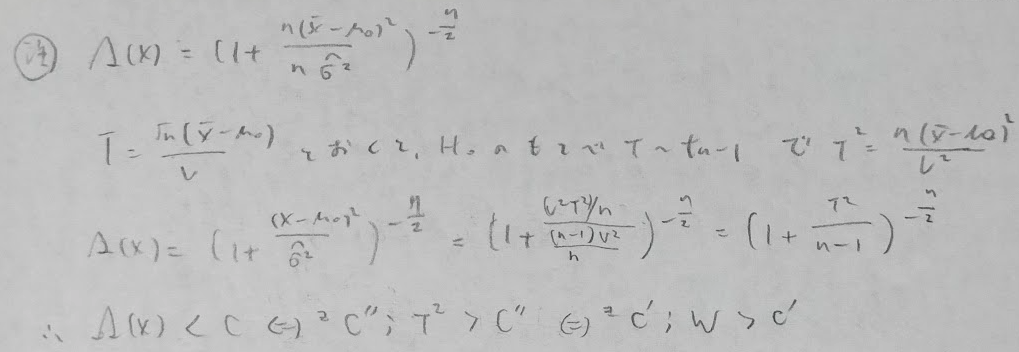 注 Λ(x) = (1+ n(x̄-μ₀)² / n σ̂²)^{-n/2}
T = √n(x̄-μ₀) / V とおくと, H₀ のもとで T ~ t_{n-1} で T² = n(x̄-μ₀)² / V²
Λ(x) = (1+ (x-μ₀)² / σ̂²)^{-n/2} = (1+ (V²T²/n) / ((n-1)V² / n))^{-n/2} = (1+ T² / n-1)^{-n/2}
∴ Λ(x) < C ⇔ ∃C''; T² > C'' ⇔ ∃C'; W > C'